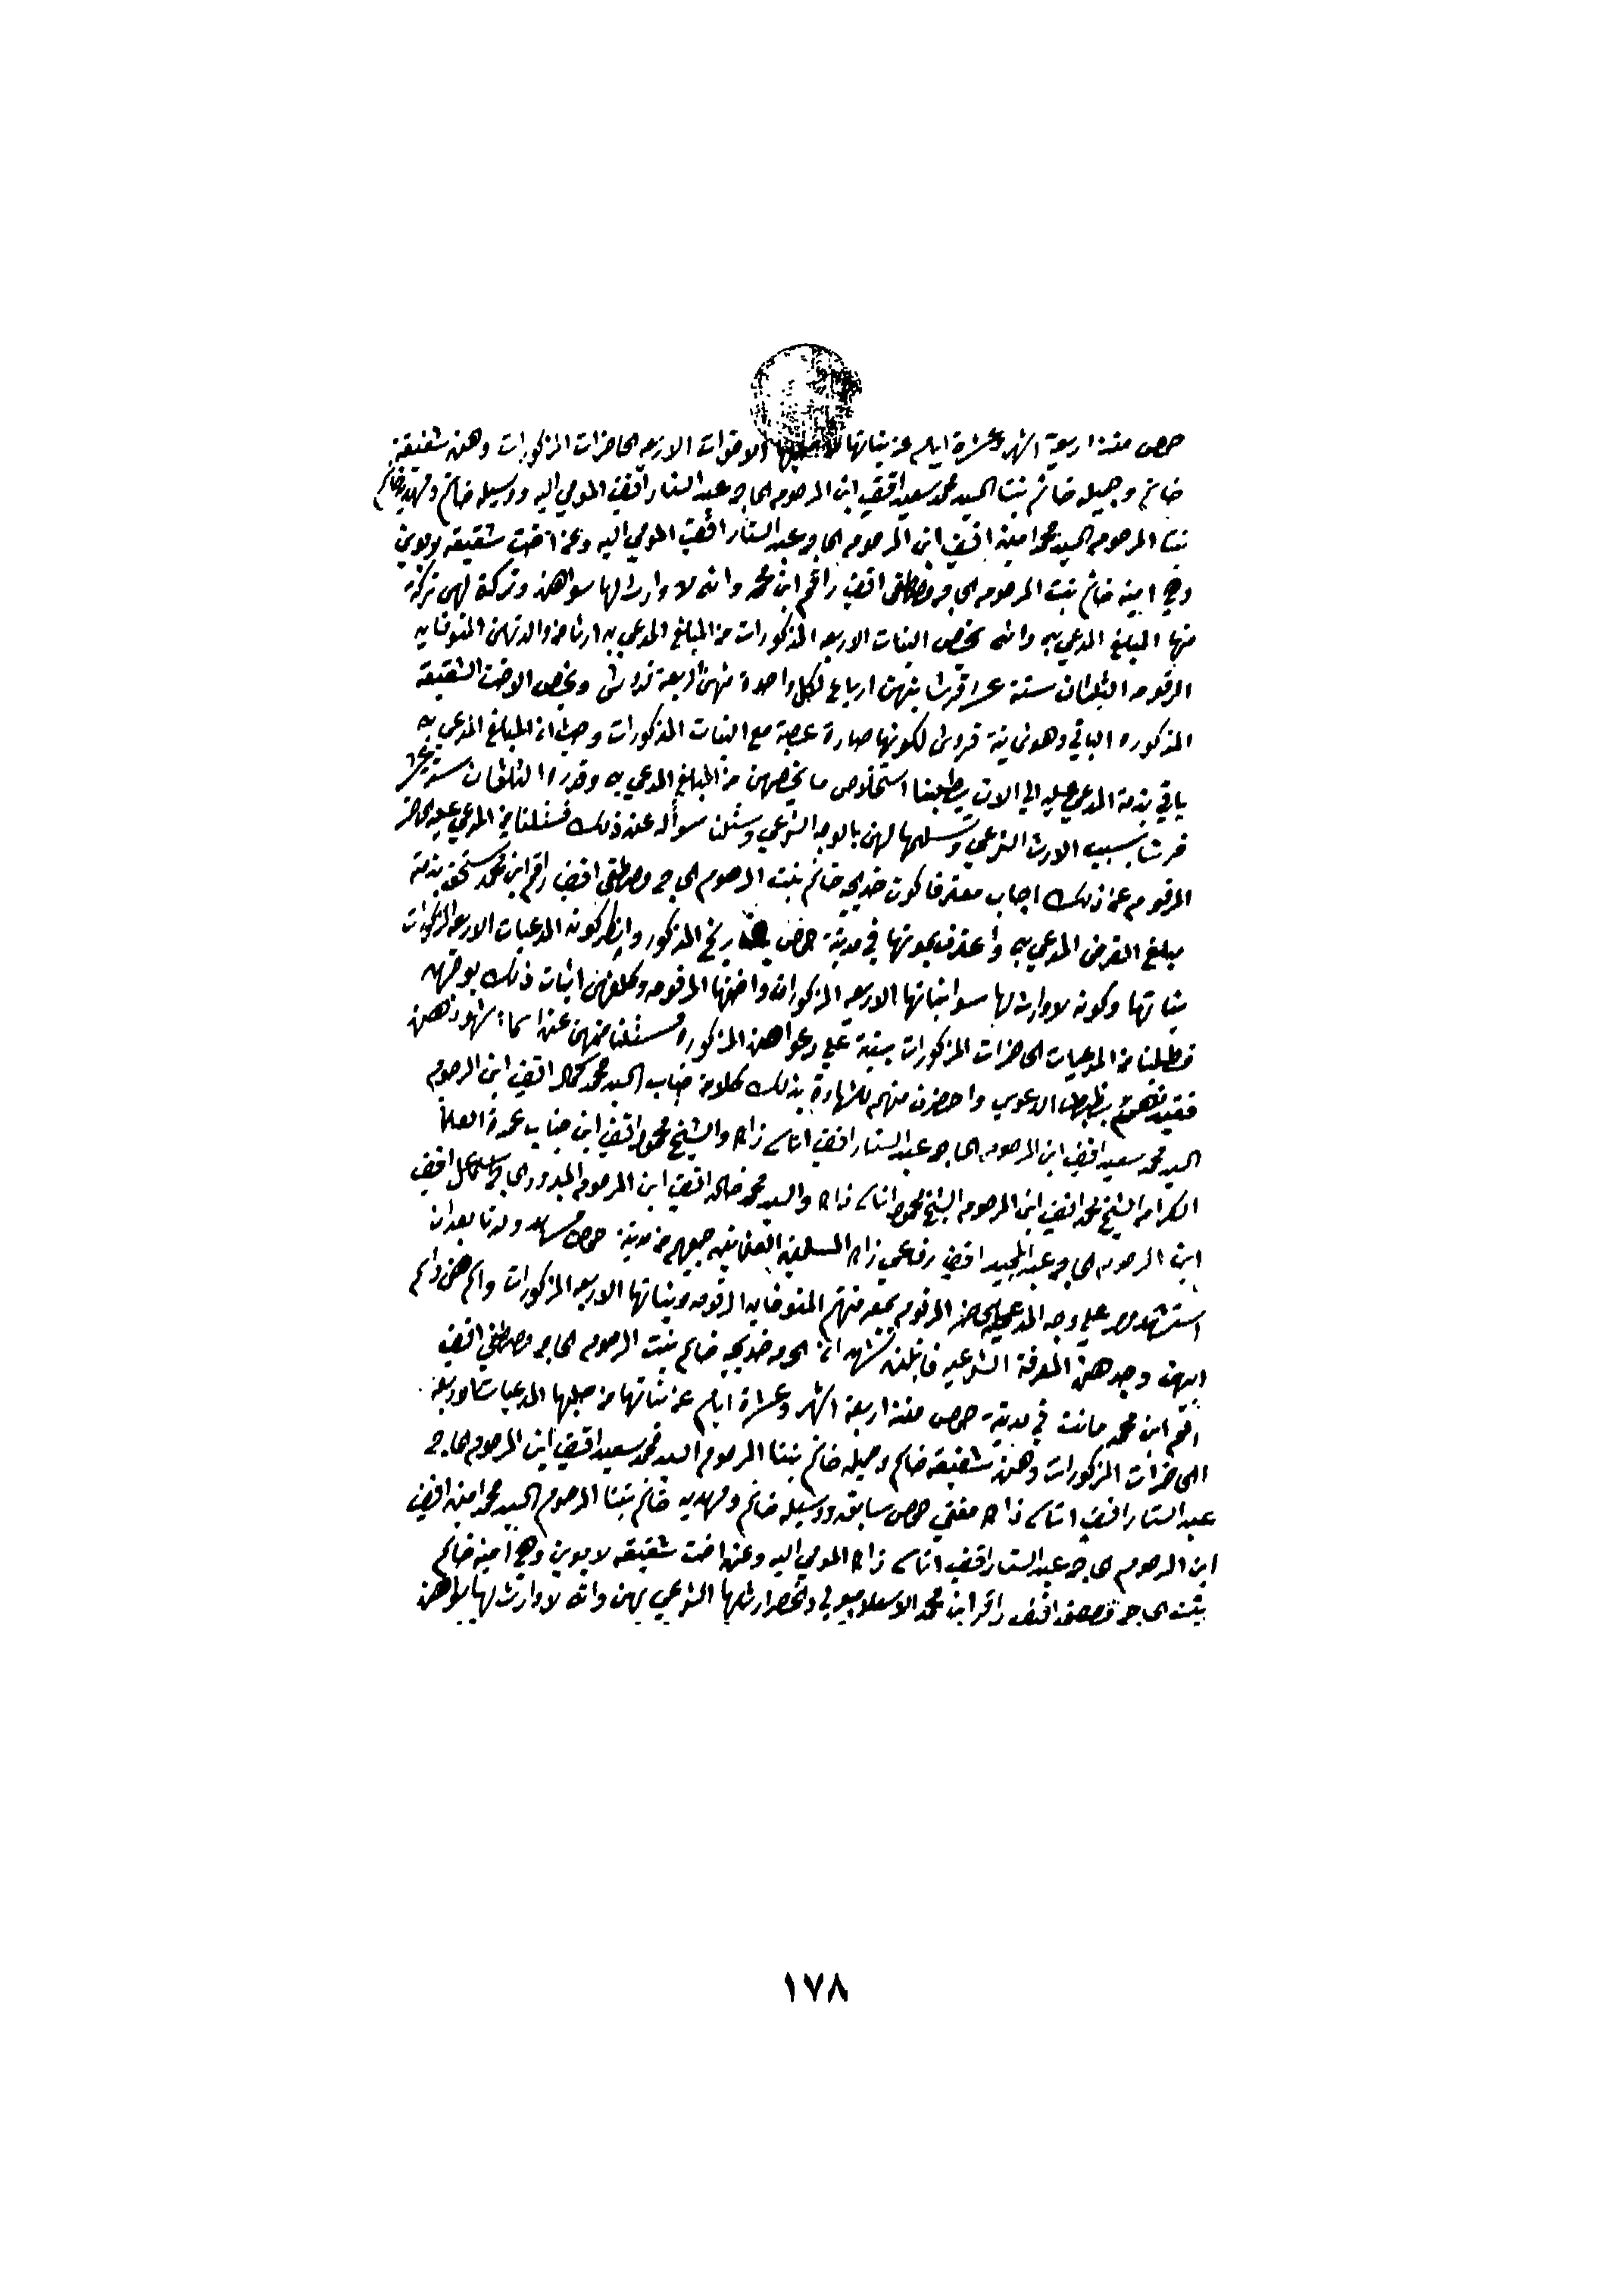 حمص منذ اربعة اشهر وعشرة ايام عن بناتها الاخوات الاربعه الحاضرات المذكورات وهن شفيقه
خانم وجميله خانم بنتا السيد محمد سعيد افندي ابن المرحوم الحاج عبد الستار افندي المومي اليه ووسيله خانم ومهديه خانم
بنتا المرحوم السيد محمد امين افندي ابن المرحوم الحاج عبد الستار افندي المومي اليه وعن اخت شقيقه لابوين
وهي امينه خانم بنت المرحوم الحاج مصطفى افندي راقم ابن محمد وانه لا وارث لها سواهن وتركة لهن تركة
منها المبلغ المدعي به وانه يخص البنات الاربعه المذكورات من المبلغ المدعي به ارثا من والدتهن المتوفايه
المرقومه الثلثان ستة عشر قرشا بينهن ارباع لكل واحدة منهن اربعة قروش ويخص الاخت الشقيقة
المذكوره الباقي وهو ثمانية قروش لكونها صارة عصبة مع البنات المذكورات وحيث ان المبلغ المدعي به
باقي بذمة المدعي عليه الي الان يطلبنا استخلاص ما يخصهن من المبلغ المدعي به وقدره الثلثان ستة عشر
قرشا بسبب الارث الشرعي وتسليمها لهن بالوجه الشرعي وسئلنا سوأله عن ذلك فسئلنا من المدعي عليه الحاضر
المرقوم عن ذلك اجاب معترفا كون خديجه خانم بنت المرحوم الحاج مصطفى افندي راقم ابن محمد تستحق بذمته
مبلغ القرض المدعي به واعترف بموتها في مدينة حمص بالتاريخ المذكور وانكر كون المدعيات الاربعه المذكورات
بناتها وكونه لا وارث لها سوا بناتها الاربعه المذكورات واختها المرقومه وكلفهن اثبات ذلك بوجههم
فطلبنا من المدعيات الحاضرات المذكورات بينة علي دعواهن المذكوره فسئلنا منهن عن اسماء شهودهن
بظبط الدعوي واحضرن منهم للشهادة بذلك كلا من جناب السيد محمد كمال افندي ابن المرحوم
السيد محمد سعيد افندي ابن المرحوم الحاج عبد الستار افندي اتاسي زاده والشيخ محمود افندي ابن جناب عمدة العلما
الكرام الشيخ محمد افندي ابن المرحوم الشيخ محمود اتاسي زاده والسيد محمد خالد افندي ابن المرحوم المبرور الحاج اسماعيل افندي
ابن المرحوم الحاج عبد المجيد افندي رفاعي زاده المسلمين العثمانيين جميعهم من مدينة حمص وبعدان
استشهدوا علي وجه المدعي عليه الحاضر المرقوم بمعرفتهم المتوفايه المرقومه وبناتها الاربعه المذكورات
وجدهن المعرفة الشرعيه قائلين نشهد ان المرحومه خديجه خانم بنت المرحوم الحاج مصطفي افندي
راقم ابن محمد ماتت في مدينة حمص منذ اربعة اشهر وعشرة ايام عن بناتها من صلبها المدعيات الاربعة
الحاضرات المذكورات وهن شفيقه خانم وجميله خانم بنتا المرحوم السيد محمد سعيد افندي ابن المرحوم الحاج
عبد الستار افندي اتاسي زاده مفتي حمص سابقه ووسيله خانم ومهديه خانم بنتا المرحوم السيد محمد امين افندي
ابن المرحوم الحاج عبد الستار افندي اتاسي زاده المومي اليه وعن اخت شقيقه لابوين وهي امينه خانم
بنت الحاج مصطفى افندي راقم ابن محمد الاسلامبولي وانحصر ارثها الشرعي بهن وانه لا وارث لها سواهن
١٧٨